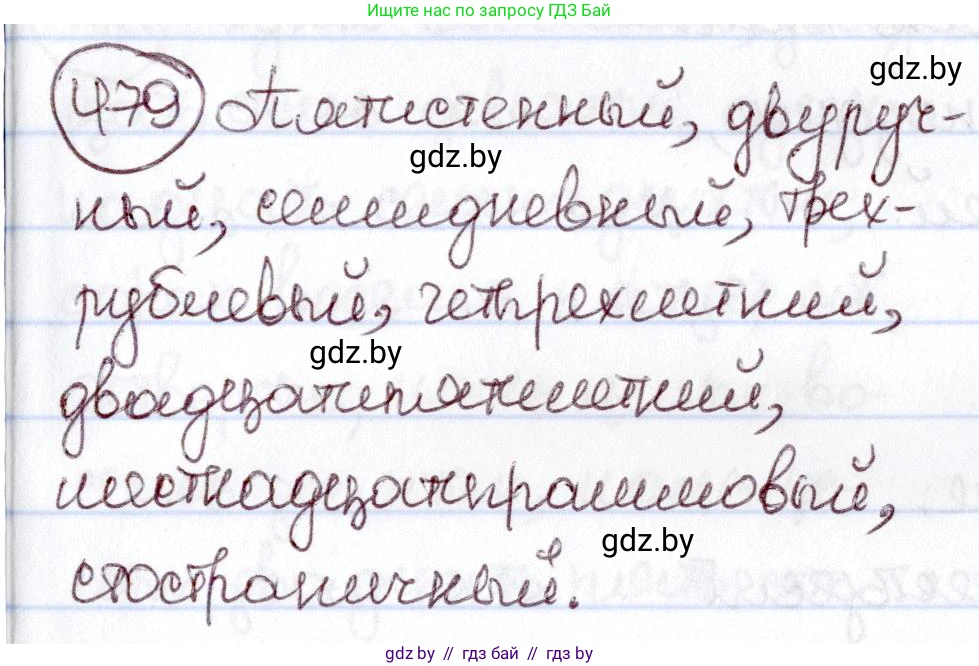 Ищите нас по запросу ГДЗ Бай
479 Пятистенный, двуруч-
ный, семидневный, трех-
рублевый, четырехлетний,
двадцатипятилетний,
шестнадцатиграммовый,
стостраничный.
gdz.by
gdz.by
gdz.by
gdz.by
gdz.by // gdz.by // gdz.by